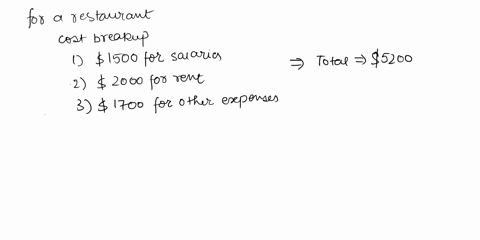 for a restaurant
cost breakup
1) $1500 for salaries
⇒ Total ⇒ $5200
2) $2000 for rent
3) $1700 for other expenses